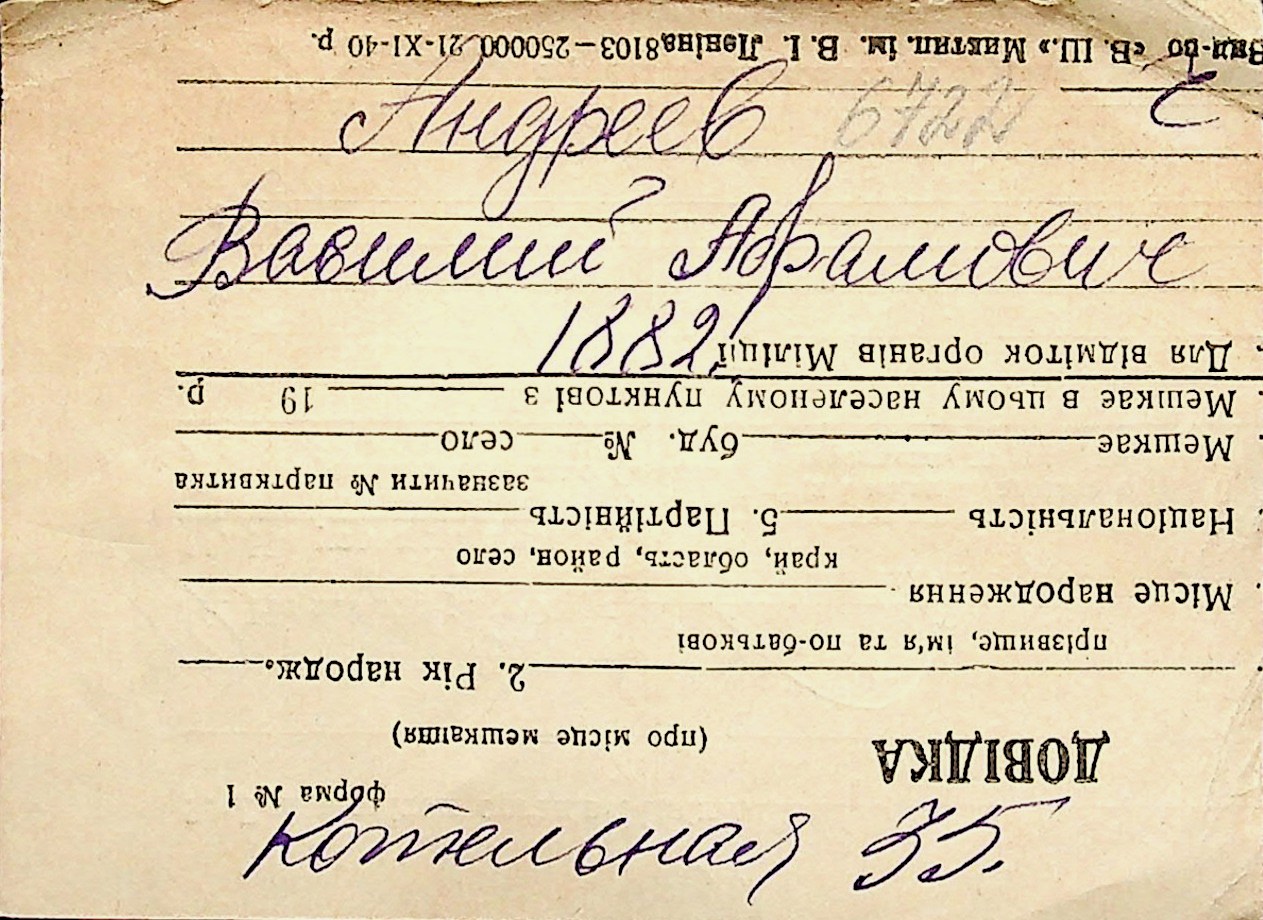 Андреев 6722
Василий Абрамович
1882
Котельная 35.
форма № 1
ДОВІДКА
(про місце мешкання)
2. Рік народж.
прізвище, ім'я та по-батькові
Місце народження
край, область, район, село
Національність 5. Партійність
зазначити № партквитка
Мешкає буд. № село
Мешкає в цьому населеному пунктові з 19 р.
Для відміток органів Міліції
Вид-во «В. Ш.». Мактип. ім. В. І. Леніна 8103—250000 21-XI-40 р.